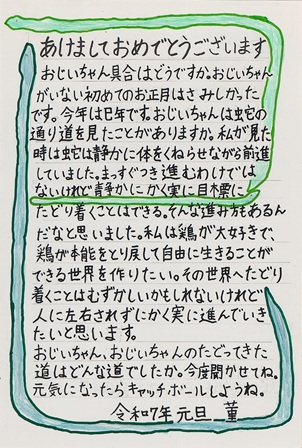 あけましておめでとうございます
おじいちゃん具合はどうですか。おじいちゃん
がいない初めてのお正月はさみしかった
です。今年は巳年です。おじいちゃんは蛇の
通り道を見たことがありますか。私が見た
時は蛇は静かに体をくねらせながら前進
していました。まっすぐつき進むわけでは
ないけれど静かにかく実に目標に
たどり着くことはできる。そんな進み方もあるん
だなと思いました。私は鶏が大好きで、
鶏が本能をとり戻して自由に生きることが
できる世界を作りたい。その世界へたどり
着くことはむずかしいかもしれないけれど
人に左右されずにかく実に進んでいき
たいと思います。
おじいちゃん、おじいちゃんのたどってきた
道はどんな道でしたか。今度聞かせてね。
元気になったらキャッチボールしようね。
令和7年 元旦 菫